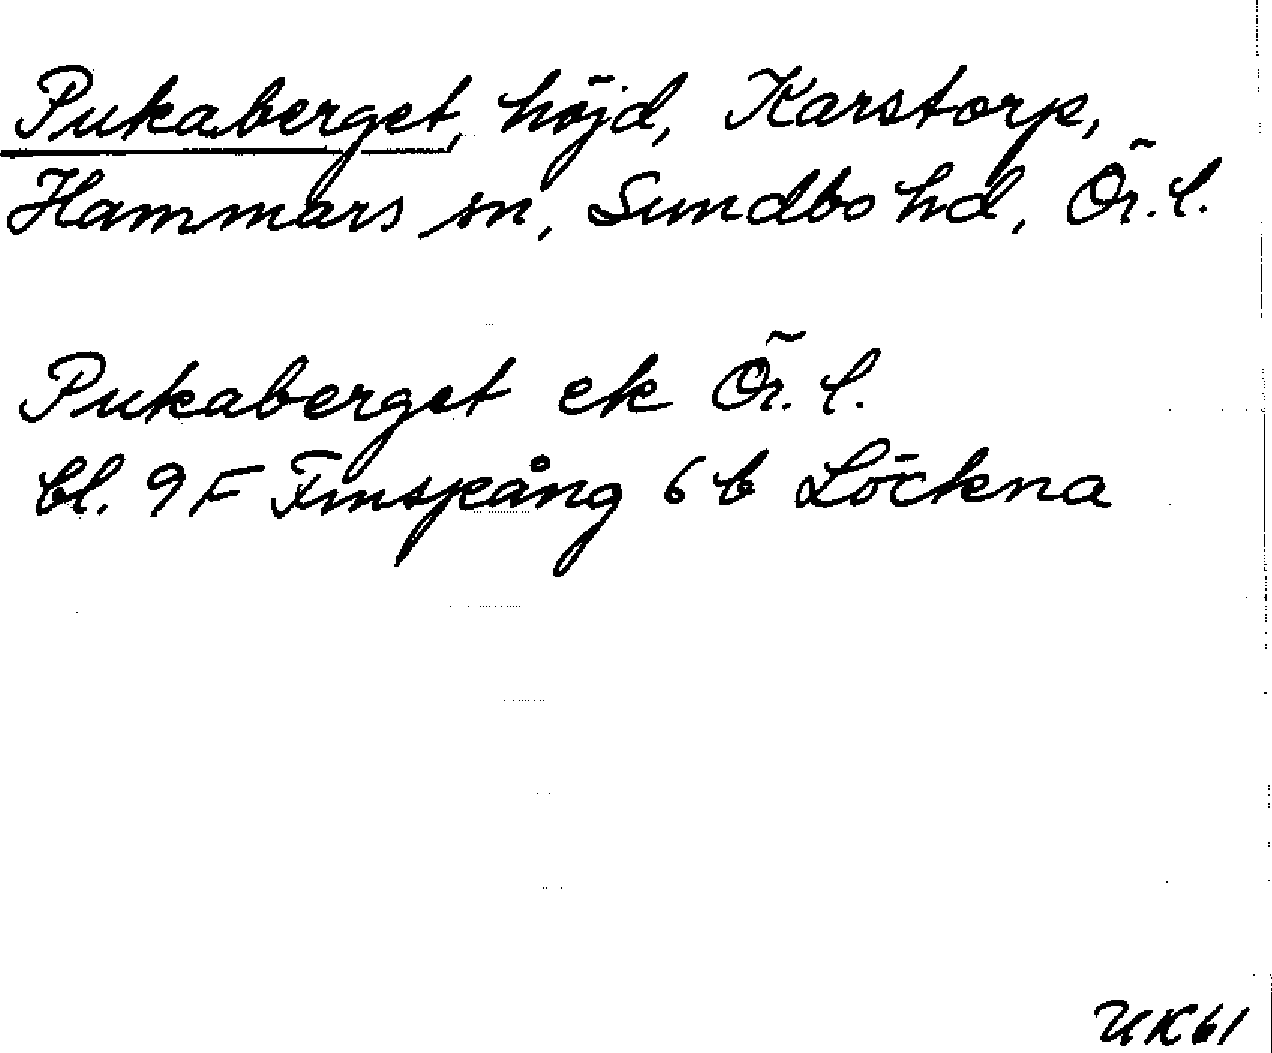 Pukaberget, höjd, Karstorp,
Hammars sn, Sundbo hd, Ör. l.
Pukaberget ek Ör. l.
bl. 9F Finspång 6 b Löckna
UK61